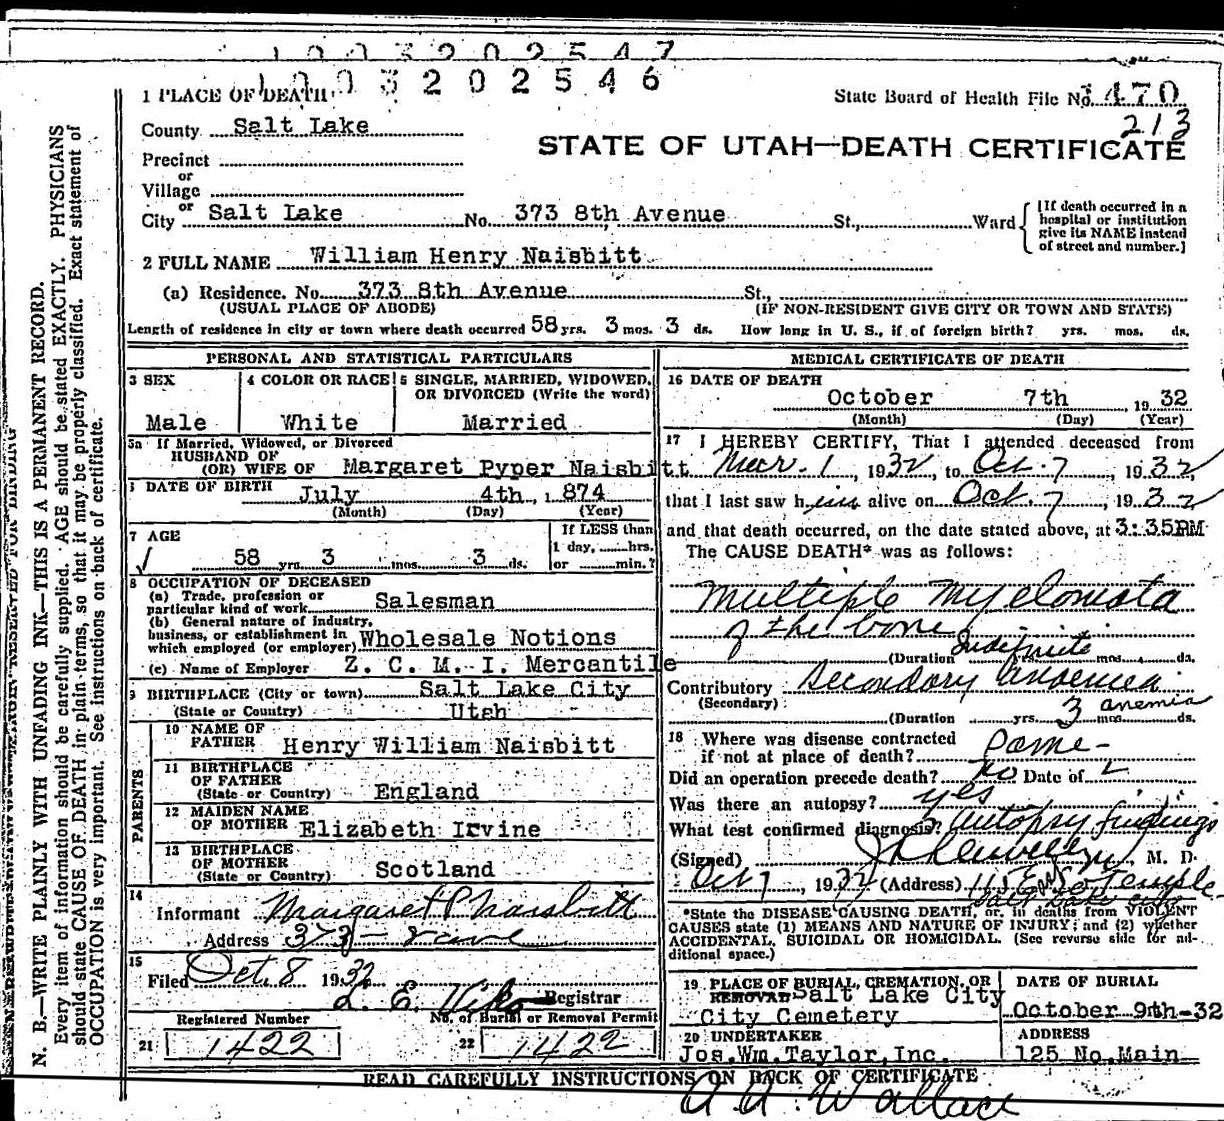 1003202547
1003202546
1 PLACE OF DEATH
State Board of Health File No. 1470
213
County Salt Lake
STATE OF UTAH—DEATH CERTIFICATE
Precinct
or
Village
or
City Salt Lake No. 373 8th Avenue St., Ward
[If death occurred in a hospital or institution give its NAME instead of street and number.]
2 FULL NAME William Henry Naisbitt
(a) Residence. No. 373 8th Avenue St.,
(USUAL PLACE OF ABODE) (IF NON-RESIDENT GIVE CITY OR TOWN AND STATE)
Length of residence in city or town where death occurred 58 yrs. 3 mos. 3 ds. How long in U. S., if of foreign birth? yrs. mos. ds.
PERSONAL AND STATISTICAL PARTICULARS
3 SEX 4 COLOR OR RACE 5 SINGLE, MARRIED, WIDOWED,
OR DIVORCED (Write the word)
Male White Married
5a If Married, Widowed, or Divorced
HUSBAND OF
(OR) WIFE OF Margaret Pyper Naisbitt
DATE OF BIRTH July 4th, 1874
(Month) (Day) (Year)
7 AGE
If LESS than
1 day, hrs.
or min.?
58 yrs. 3 mos. 3 ds.
8 OCCUPATION OF DECEASED
(a) Trade, profession or
particular kind of work Salesman
(b) General nature of industry,
business, or establishment in
which employed (or employer) Wholesale Notions
(c) Name of Employer Z. C. M. I. Mercantile
9 BIRTHPLACE (City or town) Salt Lake City
(State or Country) Utah
PARENTS
10 NAME OF
FATHER Henry William Naisbitt
11 BIRTHPLACE
OF FATHER
(State or Country) England
12 MAIDEN NAME
OF MOTHER Elizabeth Irvine
13 BIRTHPLACE
OF MOTHER
(State or Country) Scotland
14
Informant Margaret P Naisbitt
Address 373 - 8 ave
15
Filed Oct. 8 1932
L. E. Registrar
Registered Number No. of Burial or Removal Permit
21 1422 22 1422
MEDICAL CERTIFICATE OF DEATH
16 DATE OF DEATH
October 7th, 1932
(Month) (Day) (Year)
17 I HEREBY CERTIFY, That I attended deceased from
Mar. 1, 1932, to Oct. 7, 1932
that I last saw him alive on Oct. 7, 1932
and that death occurred, on the date stated above, at 3:35PM
The CAUSE DEATH* was as follows:
Multiple Myelomata
of the bone
(Duration Indefinite yrs. mos. ds.
Contributory Secondary anaemia
(Secondary) anemia
(Duration yrs. 3 mos. ds.
18 Where was disease contracted
if not at place of death? Same-
Did an operation precede death? No Date of
Was there an autopsy? yes
What test confirmed diagnosis? Autopsy findings
(Signed) , M. D.
Oct 7, 1932 (Address) 115 East So Temple
Salt Lake City
*State the DISEASE CAUSING DEATH, or, in deaths from VIOLENT
CAUSES state (1) MEANS AND NATURE OF INJURY; and (2) whether
ACCIDENTAL, SUICIDAL OR HOMICIDAL. (See reverse side for ad-
ditional space.)
19 PLACE OF BURIAL, CREMATION, OR
REMOVAL Salt Lake City
City Cemetery
DATE OF BURIAL
October 9th-32
20 UNDERTAKER
Jos. Wm. Taylor, Inc.
ADDRESS
125 No. Main
READ CAREFULLY INSTRUCTIONS ON BACK OF CERTIFICATE
A A. Wallace
N. B.—WRITE PLAINLY WITH UNFADING INK—THIS IS A PERMANENT RECORD.
Every item of information should be carefully supplied. AGE should be stated EXACTLY. PHYSICIANS
should state CAUSE OF DEATH in plain terms, so that it may be properly classified. Exact statement of
OCCUPATION is very important. See instructions on back of certificate.